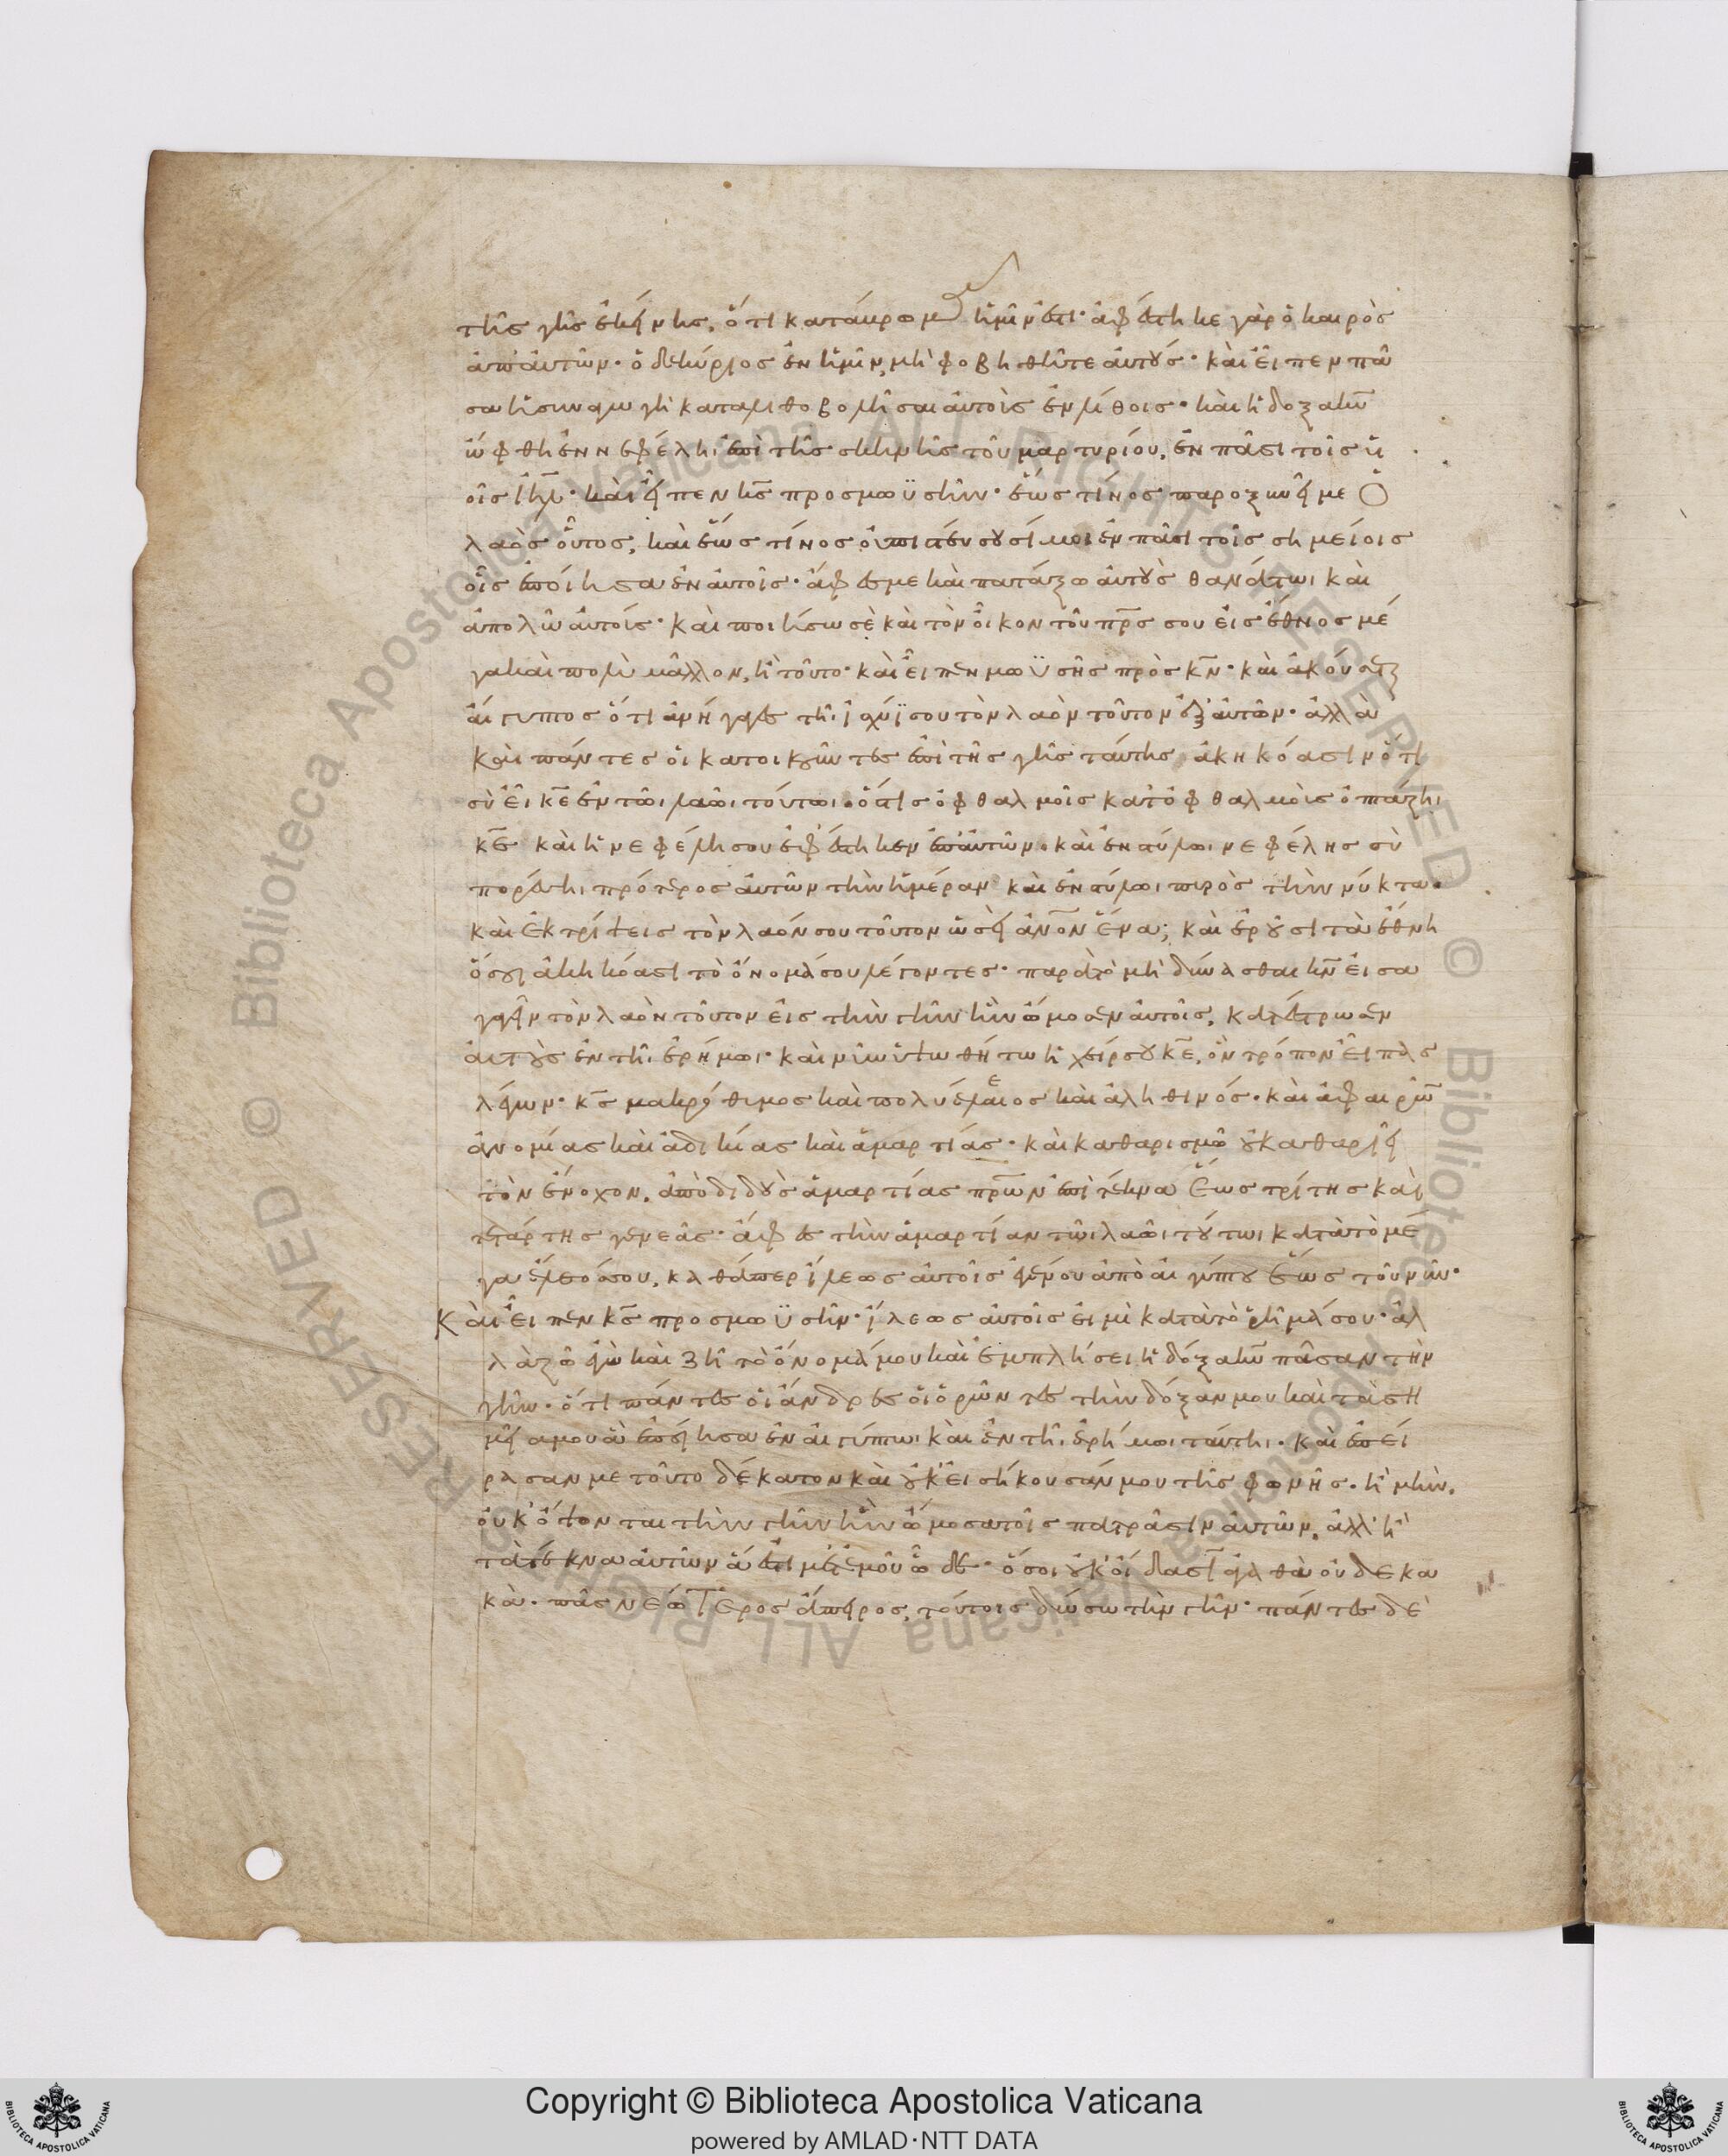 τῆς γῆς ἐκείνης, ὅτι κατάβρωμα ἡμῖν ἐστι· ἀφέστηκε γὰρ ὁ καιρὸς
ἀπ' αὐτῶν· ὁ δὲ κύριος ἐν ἡμῖν, μὴ φοβηθῆτε αὐτούς· καὶ εἶπεν πᾶ
σα ἡ συναγωγὴ καταλιθοβολῆσαι αὐτοὺς ἐν λίθοις· καὶ ἡ δόξα κυ
ὤφθη ἐν νεφέλῃ, ἐπὶ τῆς σκηνῆς τοῦ μαρτυρίου, ἐν πᾶσι τοῖς υἱ
οῖς ιηλ· καὶ εἶπεν κς προς μωϋσῆν· ἕως τίνος παροξυνεῖ με ὁ
λαὸς οὗτος, καὶ ἕως τίνος οὐ πιστεύουσί μοι ἐν πᾶσι τοῖς σημείοις
οἷς ἐποίησα ἐν αὐτοῖς· ἄφες με καὶ πατάξω αὐτοὺς θανάτωι καὶ
ἀπολῶ αὐτούς· καὶ ποιήσω σὲ καὶ τὸν οἶκον τοῦ πρς σου εἰς ἔθνος μέ
γα καὶ πολὺ μᾶλλον, ἢ τοῦτο· καὶ εἶπεν μωϋσῆς πρὸς κν· καὶ ἀκούσεται
αἴγυπτος ὅτι ἀνήγαγες τῆι ἰσχύϊ σου τὸν λαὸν τοῦτον ἐξ αὐτῶν· ἀλλὰ
καὶ πάντες οἱ κατοικοῦντες ἐπὶ τῆς γῆς ταύτης, ἀκηκόασιν ὅτι
σὺ εἶ κε ἐν τῶι λαῶι τούτωι· ὅστις ὀφθαλμοῖς κατ' ὀφθαλμοὺς ὀπτάζηι
κε καὶ ἡ νεφέλη σου ἐφέστηκεν ἐπ' αὐτῶν· καὶ ἐν στύλωι νεφέλης σὺ
πορεύηι πρότερος αὐτῶν τὴν ἡμέραν καὶ ἐν στύλωι πυρὸς τὴν νύκτα·
καὶ ἐκτρίψεις τὸν λαόν σου τοῦτον ὡσεὶ ανον ἕνα; καὶ ἐροῦσι τὰ ἔθνη
ὅσοι ἀκηκόασι τὸ ὄνομά σου λέγοντες· παρὰ τὸ μὴ δύνασθαι κν εἰσα
γαγεῖν τὸν λαὸν τοῦτον εἰς τὴν γῆν ἣν ὤμοσεν αὐτοῖς, κατέστρωσεν
αὐτοὺς ἐν τῆι ἐρήμωι· καὶ νῦν ὑψωθήτω ἡ χείρ σου κε, ὃν τρόπον εἶπας
λέγων· κς μακρόθυμος καὶ πολυέλεος καὶ ἀληθινός· καὶ ἀφαιρῶν
ἀνομίας καὶ ἀδικίας καὶ ἁμαρτίας· καὶ καθαρισμῶ οὐ καθαριεῖ
τὸν ἔνοχον, ἀποδιδοὺς ἁμαρτίας πρων ἐπὶ τέκνα ἕως τρίτης καὶ
τετάρτης γενεᾶς· ἄφες τὴν ἁμαρτίαν τῶι λαῶι τούτωι κατὰ τὸ μέ
γα ἔλεός σου, καθάπερ ἵλεως αὐτοῖς ἐγένου ἀπὸ αἰγύπτου ἕως τοῦ νῦν·
Καὶ εἶπεν κς προς μωϋσῆν· ἵλεως αὐτοῖς εἰμὶ κατὰ τὸ ῥῆμά σου· ἀλ
λὰ ζῶ ἐγὼ καὶ ζῆ τὸ ὄνομά μου καὶ ἐμπλήσει ἡ δόξα κυ πᾶσαν τὴν
γῆν· ὅτι πάντες οἱ ἄνδρες οἱ ὁρῶντες τὴν δόξαν μου καὶ τὰ ση
μεῖα μου ἃ ἐποίησα ἐν αἰγύπτωι καὶ ἐν τῆι ἐρήμωι ταύτηι· καὶ ἐπεί
ρασαν με τοῦτο δέκατον καὶ οὐκ εἰσήκουσάν μου τῆς φωνῆς· ἦ μὴν,
οὐκ ὄψονται τὴν γῆν ἣν ὤμοσα τοῖς πατράσιν αὐτῶν, ἀλλ' ἢ
τὰ τέκνα αὐτῶν ἅ ἐστι μετ' ἐμοῦ ὧδε· ὅσοι οὐκ οἴδασιν ἀγαθὸν οὐδὲ κα
κὸν· πᾶς νεώτερος ἄπειρος, τούτοις δώσω τὴν γῆν· πάντες δὲ